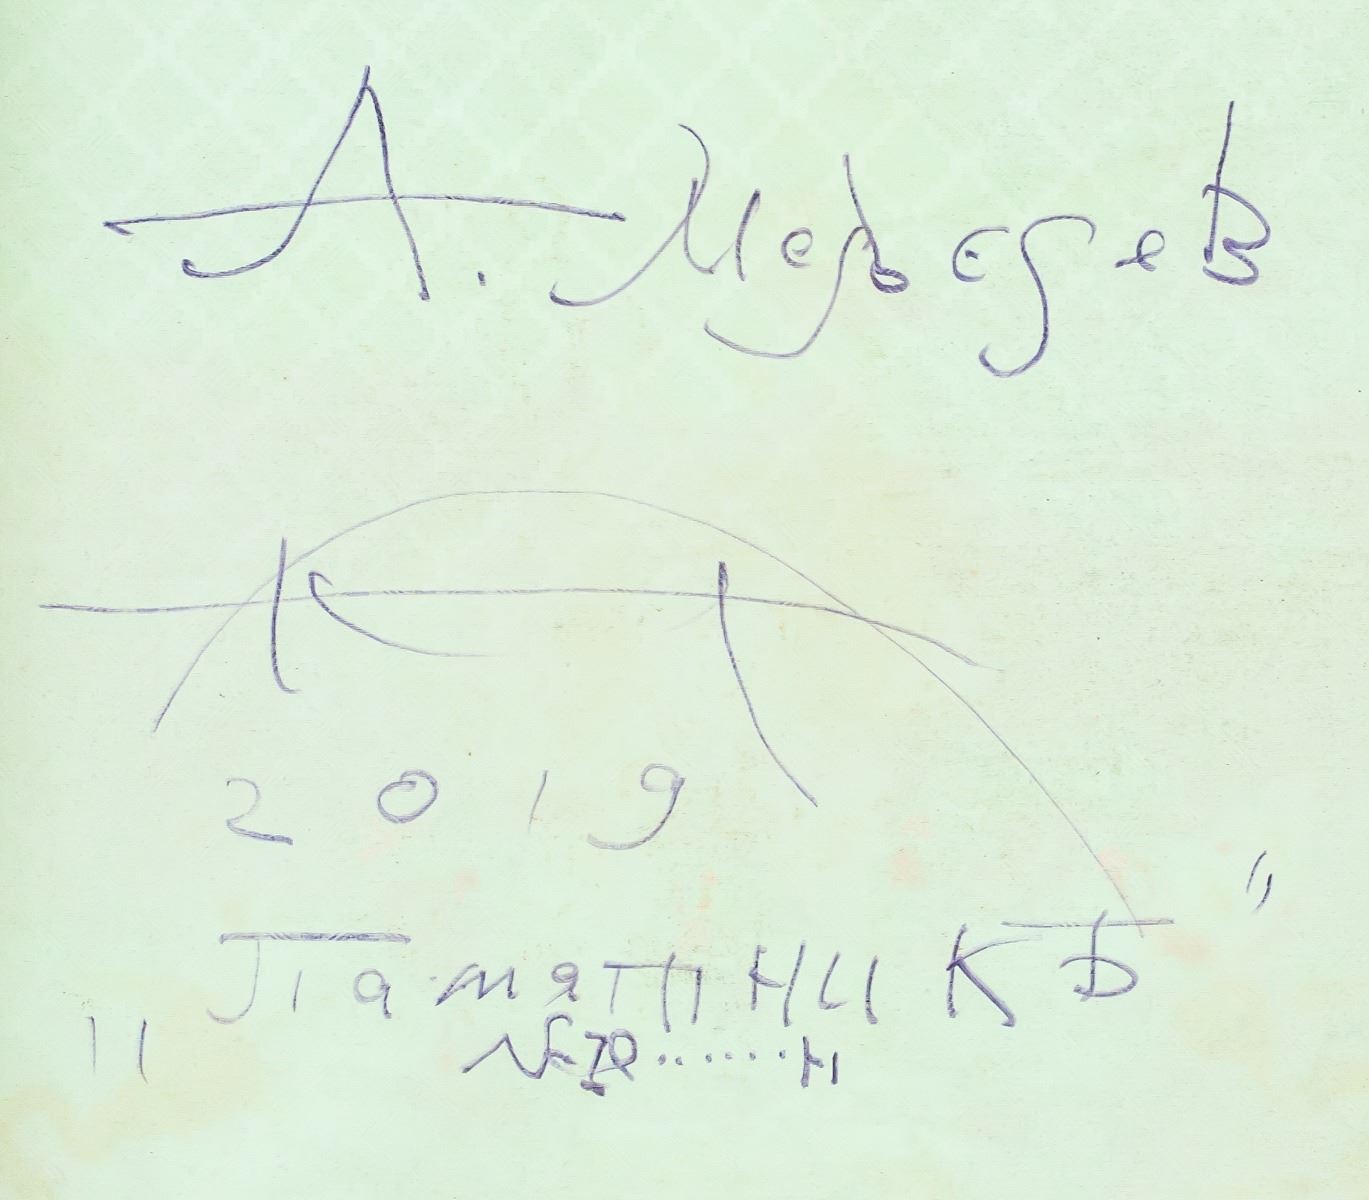 А. Медведев
2019
"Памятникъ"